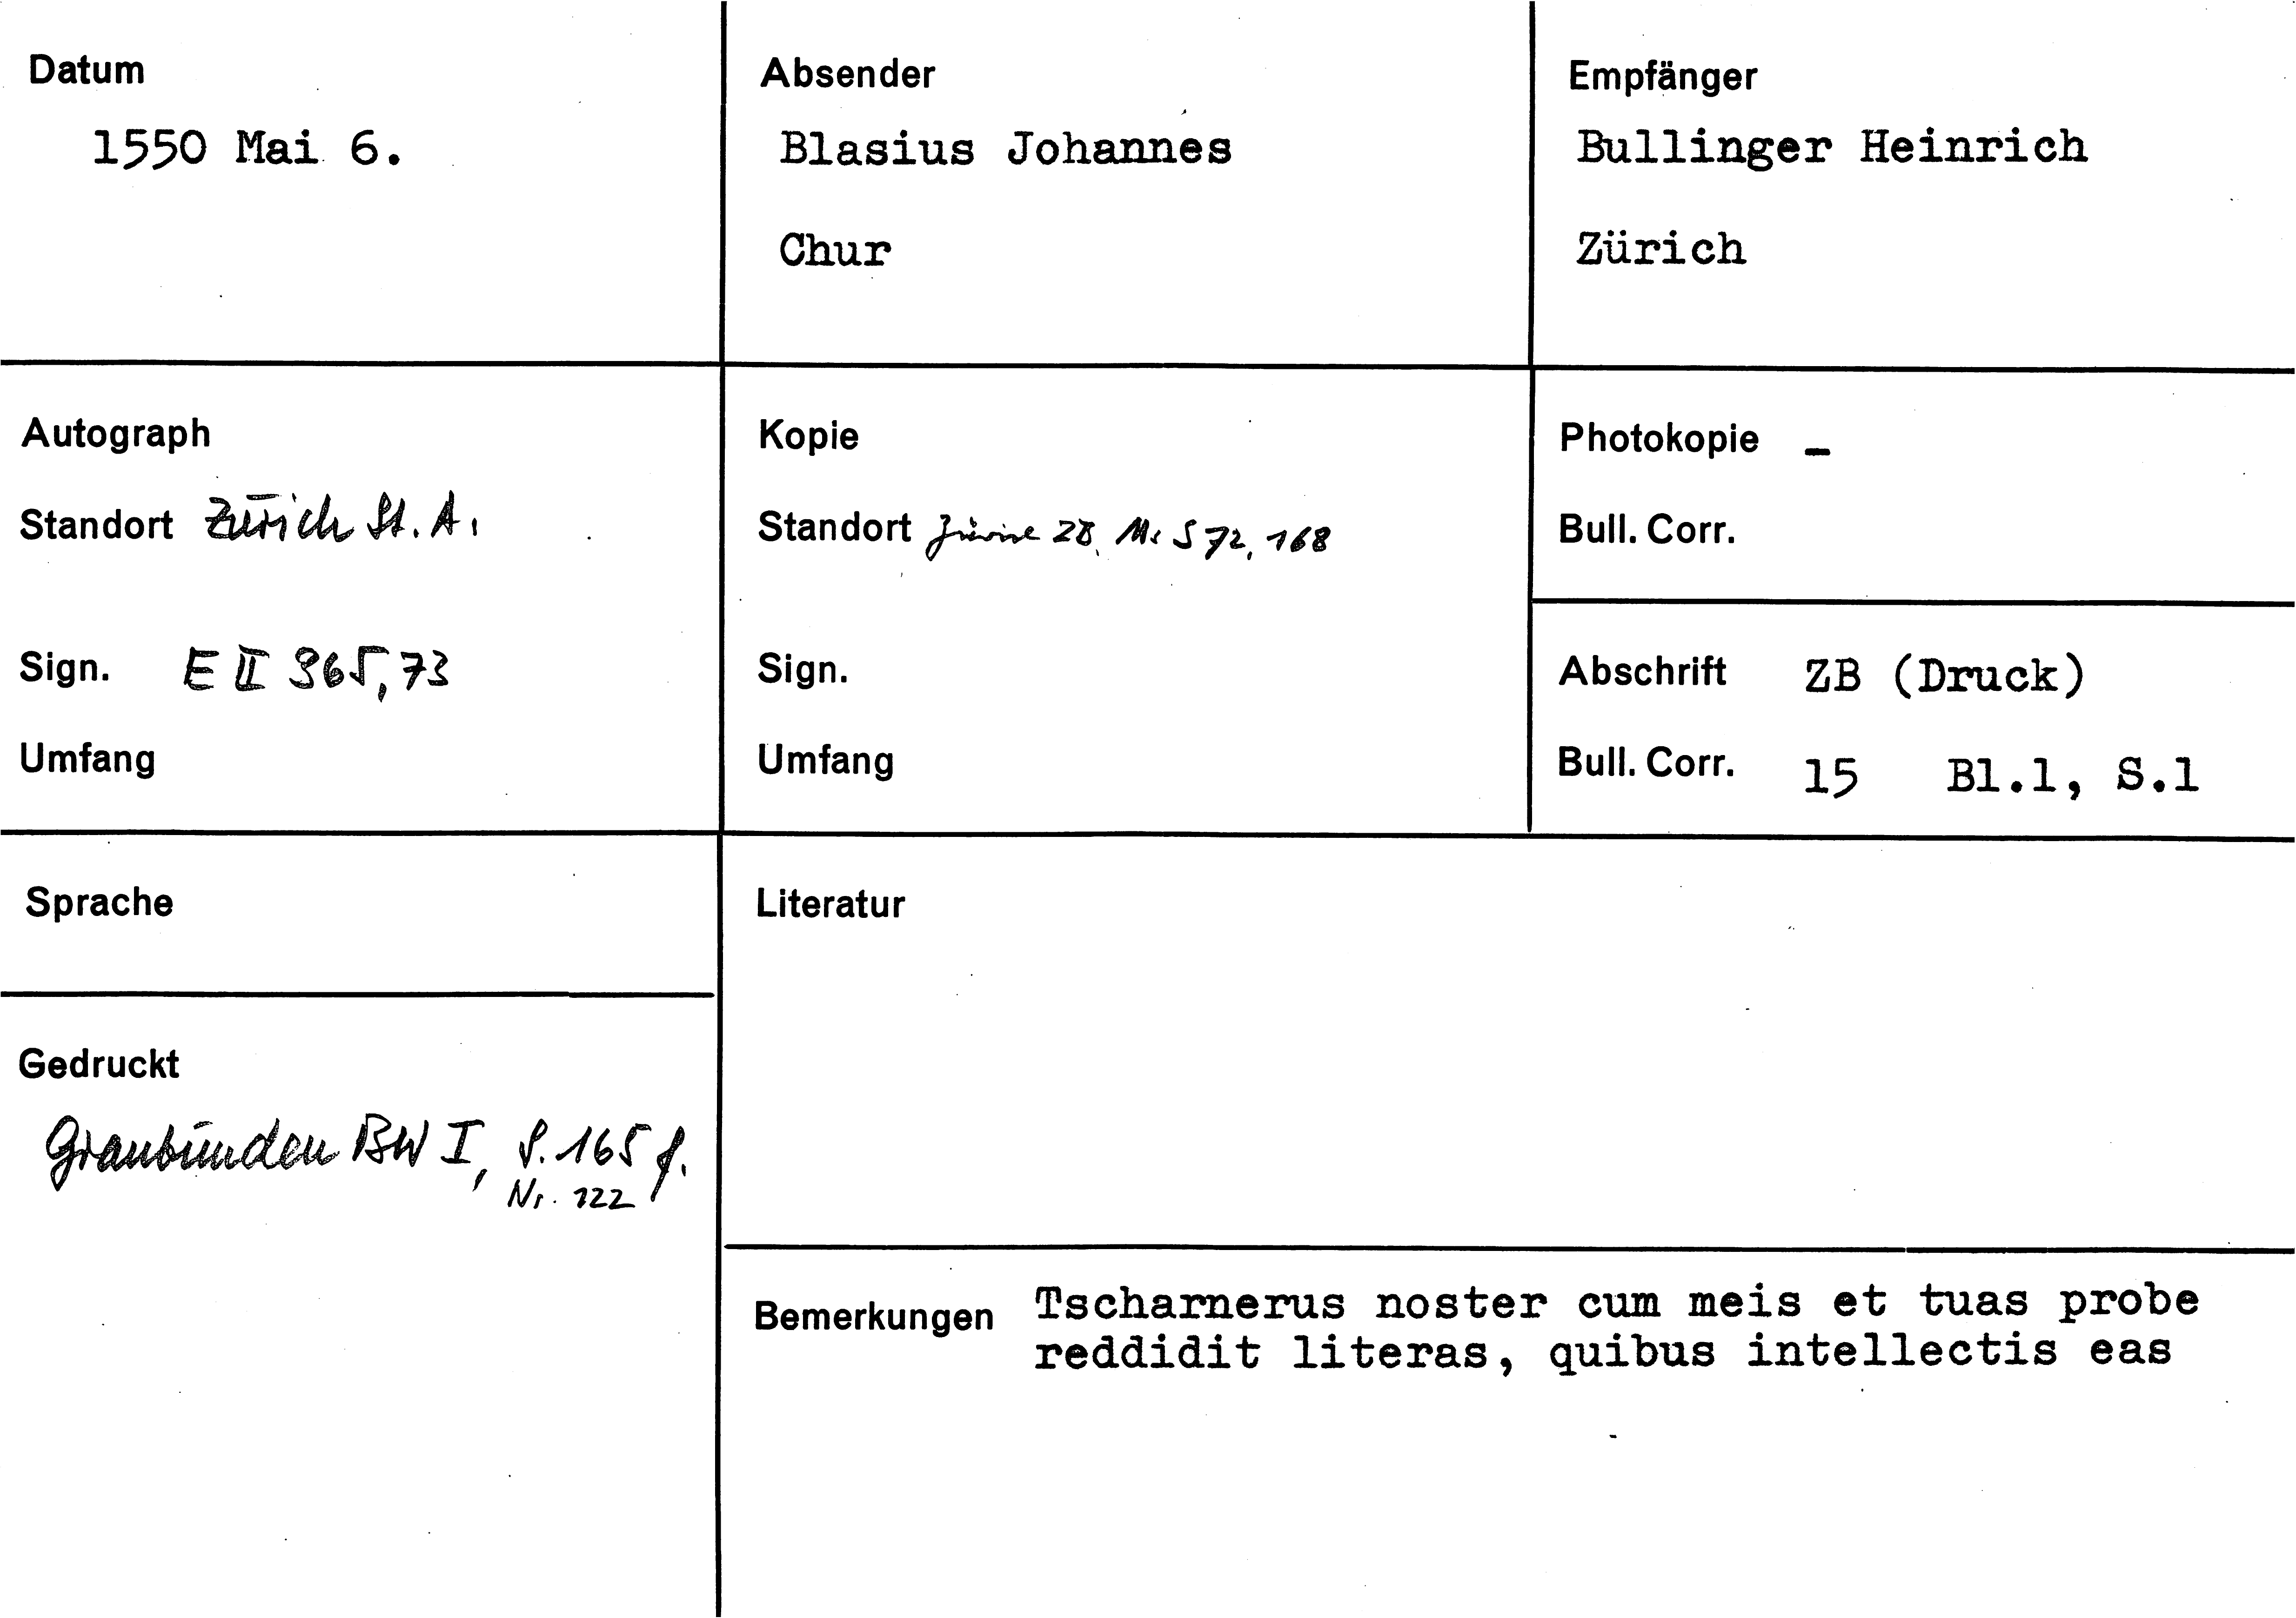 Datum
1550 Mai 6.
Absender
Blasius Johannes
Chur
Empfänger
Bullinger Heinrich
Zürich
Autograph
Standort Zürich St. A.
Sign. E II 365,73
Umfang
Kopie
Standort Zürich ZB, Ms S 72, 168
Sign.
Umfang
Photokopie –
Bull. Corr.
Abschrift ZB (Druck)
Bull. Corr. 15 Bl.1, S.1
Sprache
Gedruckt
Graubünden BW I, S. 165 f.
Nr. 122
Literatur
Bemerkungen Tscharnerus noster cum meis et tuas probe
reddidit literas, quibus intellectis eas